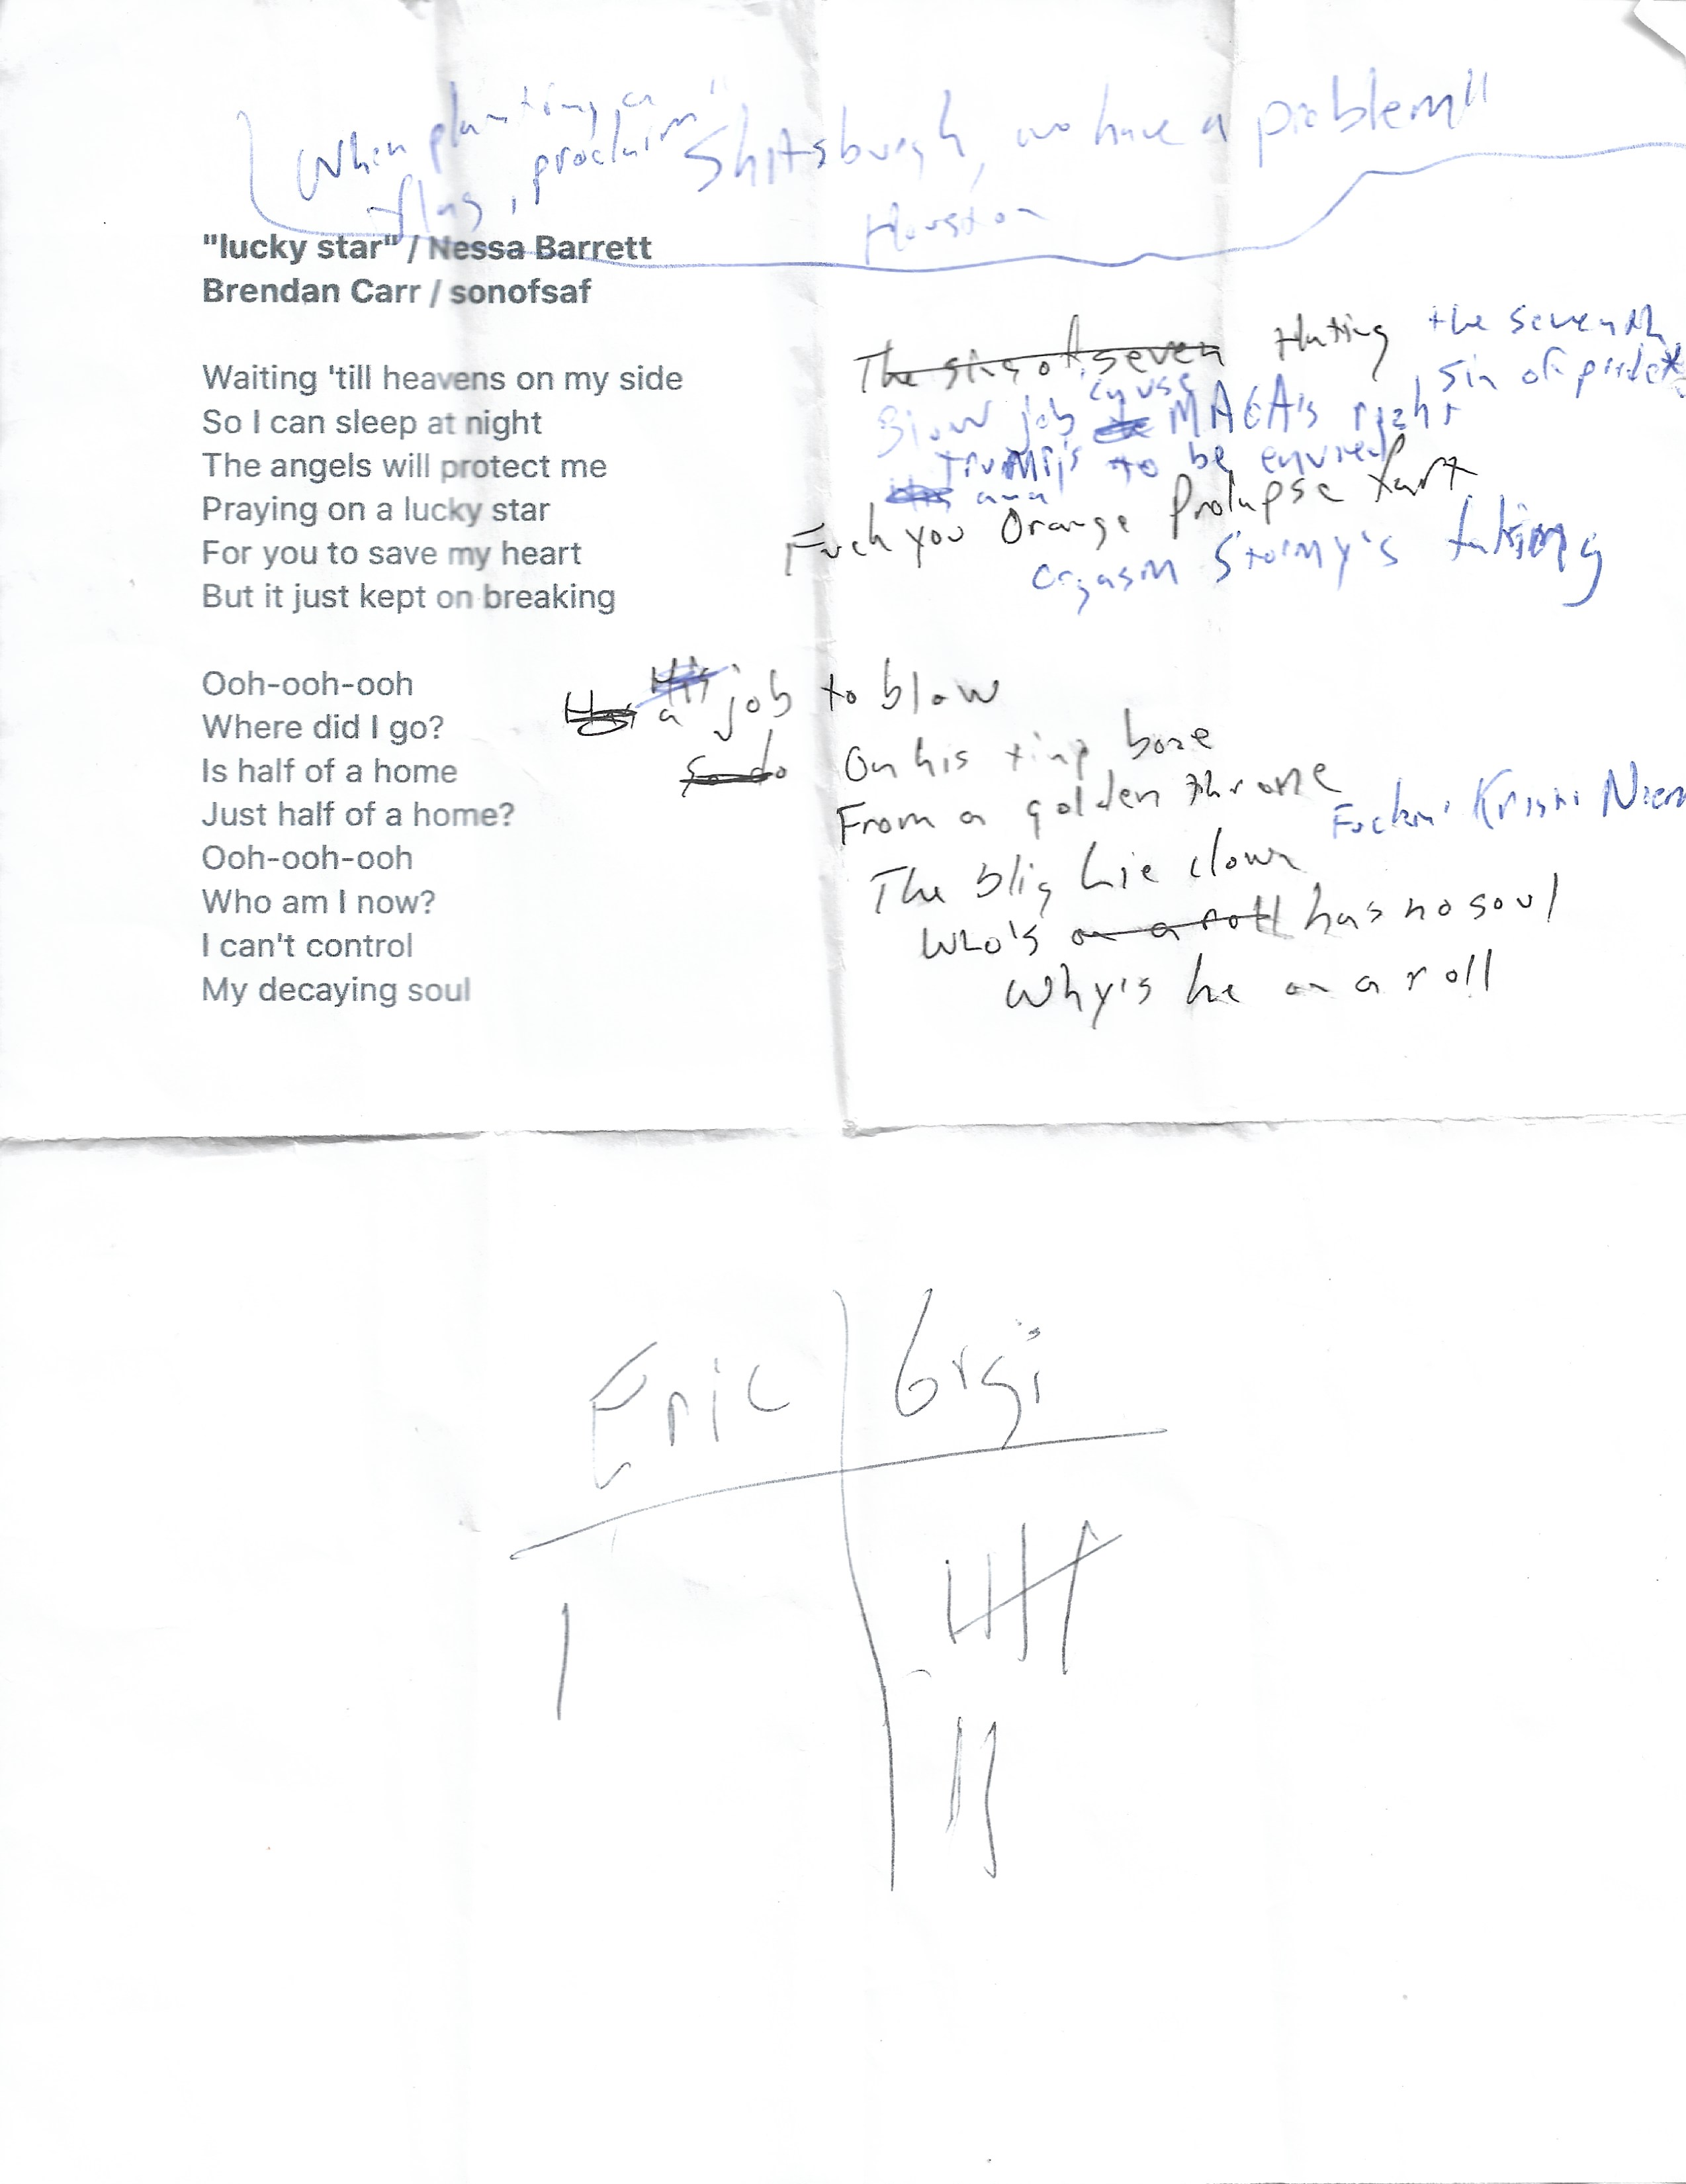 When planting a
flag, proclaim "Shitsburgh, we have a problem"
Houston
"lucky star" / Nessa Barrett
Brendan Carr / sonofsaf
The sins of seven Hating the seventh
sin of pride*
Waiting 'till heavens on my side
So I can sleep at night
Blow job 'cause MAGA's right
The angels will protect me
Trump's to be envied
and
Praying on a lucky star
Fuck you Orange Prolapse fart
For you to save my heart
orgasm Stormy's faking
But it just kept on breaking
Ooh-ooh-ooh
a job to blow
Where did I go?
So do On his tiny bone
Is half of a home
From a golden throne
Fuckin' Kristi Noem
Just half of a home?
Ooh-ooh-ooh
The big lie clown
Who am I now?
Who's on a roll has no soul
I can't control
Why's he on a roll
My decaying soul
Eric